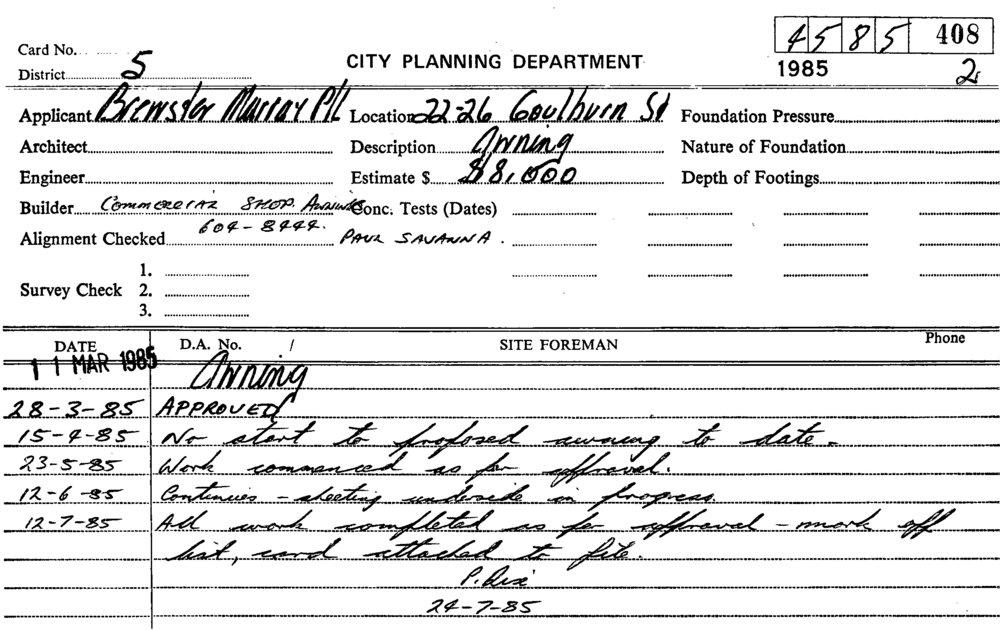 4585 408
Card No.
1985 2
District 5
CITY PLANNING DEPARTMENT
Applicant Brewster Murray P/L Location 22-26 Goulburn St Foundation Pressure
Architect Description Awning Nature of Foundation
Engineer Estimate $ $8,000 Depth of Footings
Builder COMMERCIAL SHOP AWNINGS Conc. Tests (Dates)
604-8444.
Alignment Checked PAUL SAVANNA.
1.
Survey Check 2.
3.
DATE D.A. No. / SITE FOREMAN Phone
11 MAR 1985 Awning
28-3-85 APPROVED
15-4-85 No start to proposed awning to date.
23-5-85 Work commenced as per approval.
12-6-85 Continues - sheeting underside in progress.
12-7-85 All work completed as per approval - mark off
list, card attached to file.
P.
24-7-85